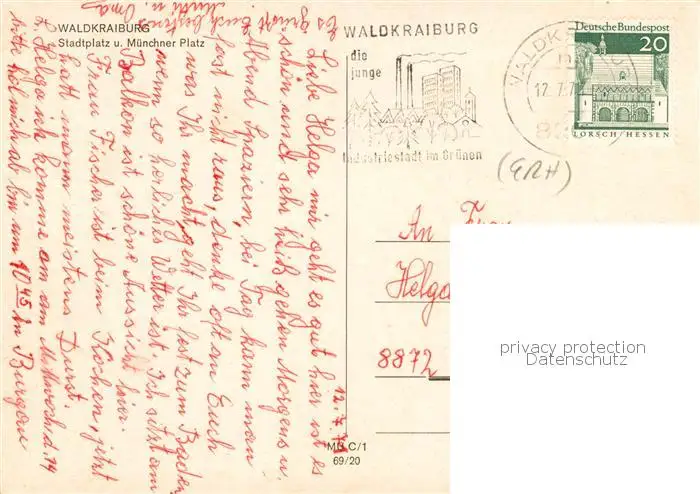 WALDKRAIBURG
Stadtplatz u. Münchner Platz
WALDKRAIBURG
die
junge
Industriestadt im Grünen
WALDK
12.7.7
82
Deutsche Bundespost
20
LORSCH/HESSEN
(ERH)
12.7.
Liebe Helga mir geht es gut hier ist es
schön und sehr heiß gehen Morgens u.
Abend Spaziern, bei Tag kann man
fast nicht raus, denke oft an Euch
was Ihr macht, geht Ihr fest zum Baden
wenn so herlichs Wetter ist. Ich sitzt am
Balkon ist schöne Aussicht hier.
Frau Fischer ist beim Kochen, jetzt
hatt mann meistens Durst.
L. Helga ich komme am Mittwoch, d. 14
mich ab bin um 10 45 in
Es grüßt Euch bestens
u. Oma
An Frau
Helga
8872
MU C/1
69/20
privacy protection
Datenschutz